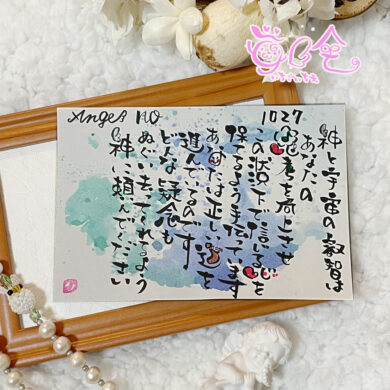 Angel NO 1027
神と宇宙の叡智は
あなたの
思考を向上させ
この状況下で信じる心を
保てるよう手伝っています
あなたは正しい道を
進んでいるのです
どんな疑念も
ぬぐい去ってくれるよう
神に頼んでください